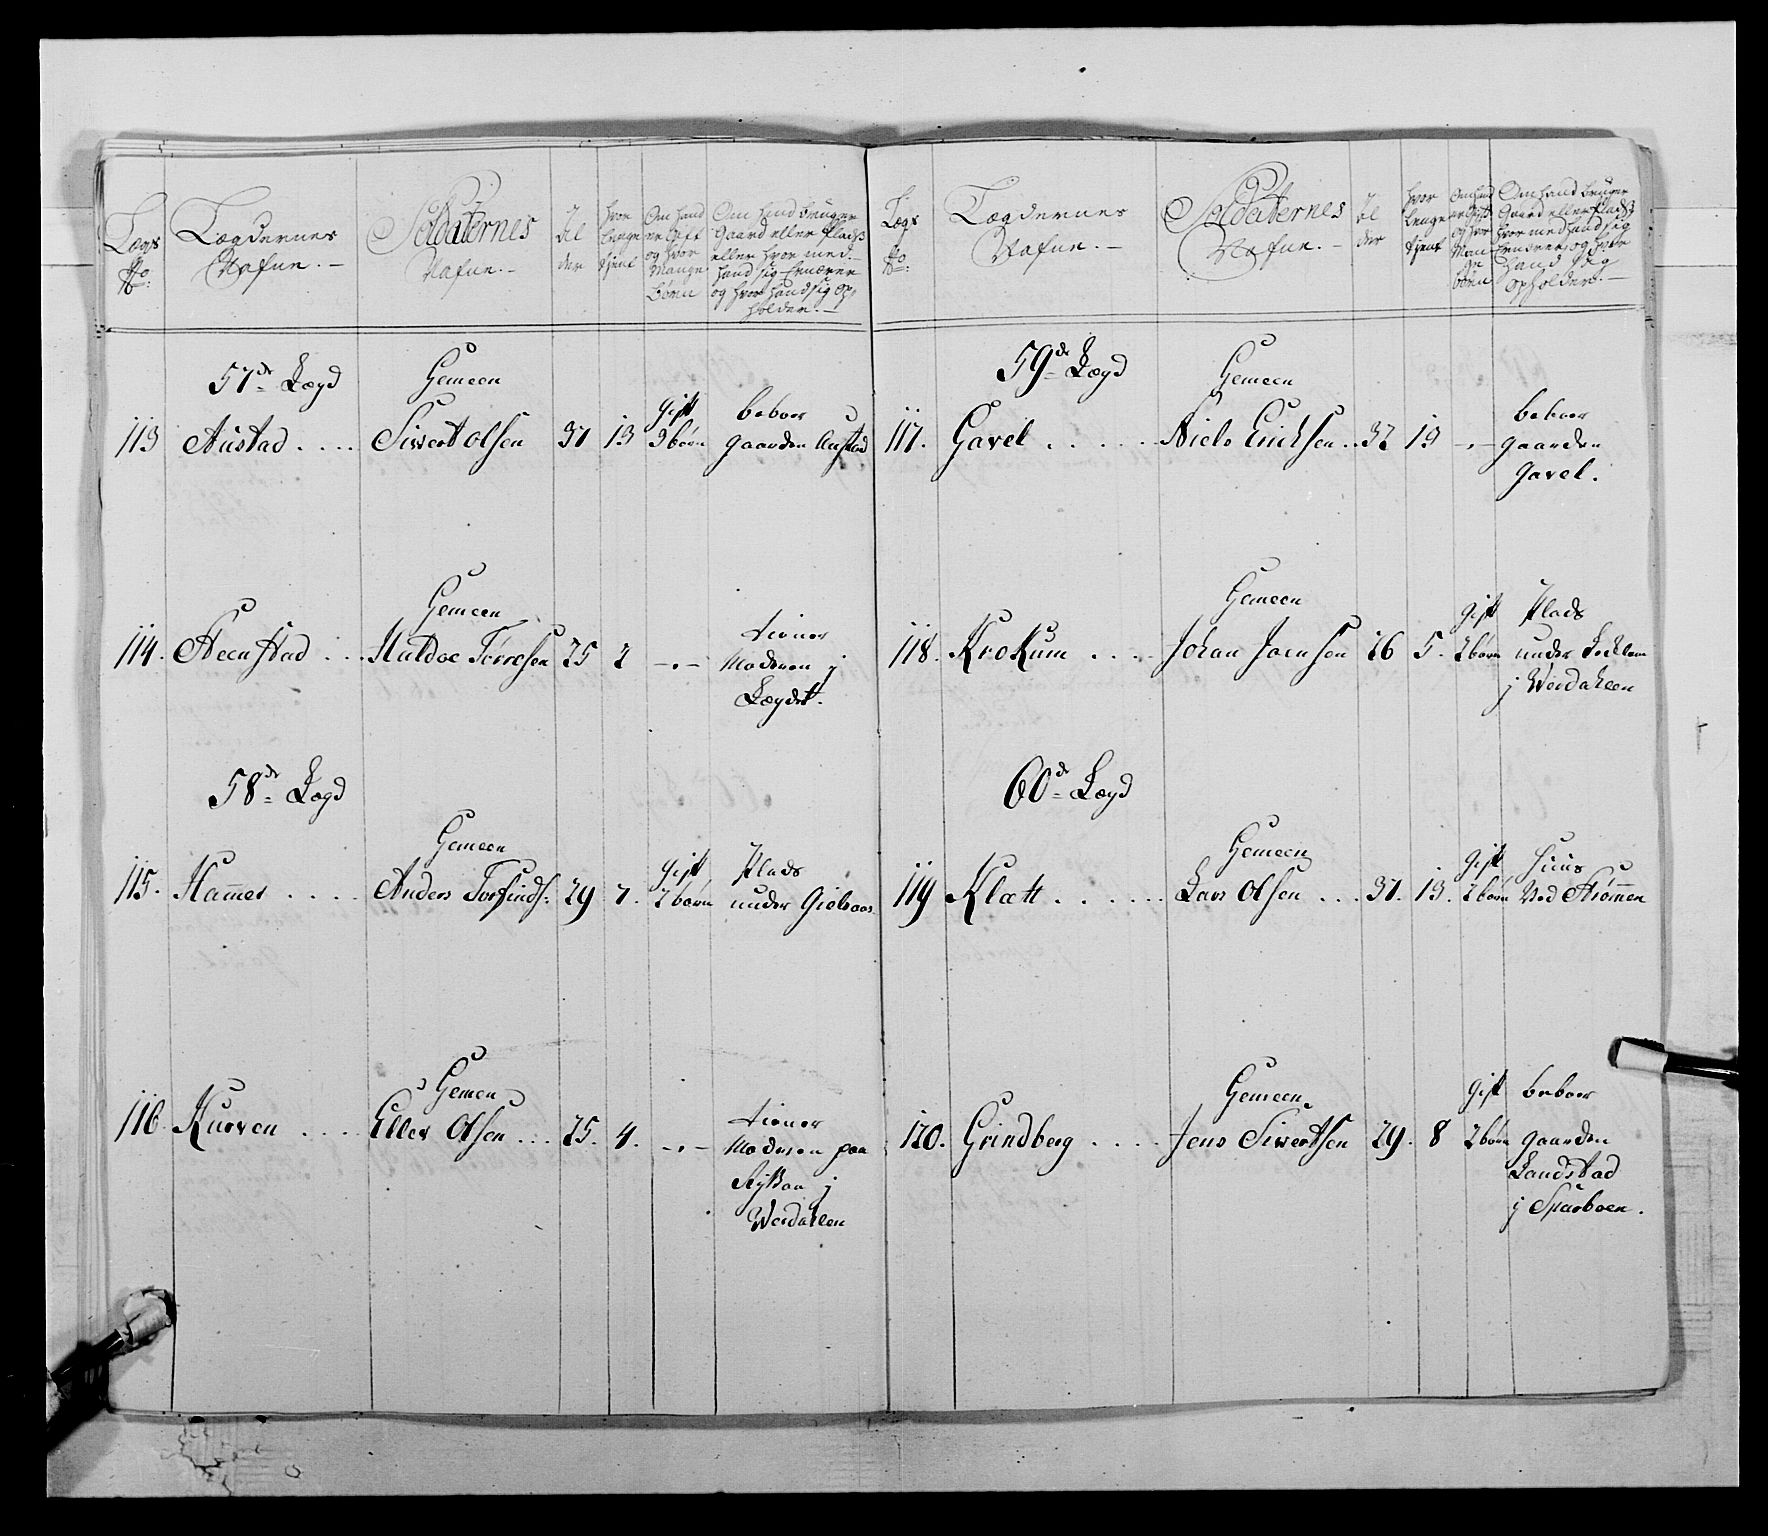 Lægs No:
Lægdernes Nafne. –
Soldaternes Nafne. –
Al der
hvor Lenge tjent
Om hand er Gift og hvor Mange Børn
Om hand bruger Gaard eller Plads eller hvor med hand sig Ernærer og hvor hand sig opholder. –
57de Lægd
Gemeen
113 Austad . . . . Siwert olsen 37 13 gift 3 børn beboer gaarden Austad
Gemeen
114. Steenstad . . . Haldoe Torresen 25 2 –.– tiener Moderen j Lægdet.
58de Lægd
Gemeen
115. Ham̄er . . . . Anders Torfinds: 29 7. gift 2 børn Plads under Gielsaas
Gemen
116. Kurven . . . . Eller Olsen . . . 25. 4. –.– tiener Moderen paa Aykaa j Werdahlen
Lægs No:
Lægdernes Nafne. –
Soldaternes Nafne. –
Al der
hvor lenge tjent
Om hand er Gift og hvor Man ge børn
Om hand bruger Gaard eller Plads hvor med hand sig Ernærer og hvor hand sig opholder. –
59de Lægd
Gemeen
117. Gavel . . . . . Niels Erichsen . . 37 19 –.– beboer gaarden Gavel.
Gemeen
118. Krokum . . . . Johan Joensen 26 5. gift 2 børn Plads under j Werdahleen
60de Lægd
Gemeen
119 Klætt . . . . . . Lars Olsen . . . 37. 13. gift 2 børn Huus Ved Strøm̄en
Gemeen
120. Grindberg . . . . Jens Siwertsen 29. 8 gift 2 børn beboer gaarden Landstad j Sparboen.